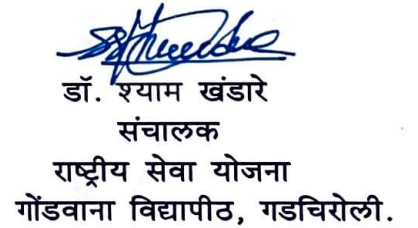 डॉ. श्याम खंडारे
संचालक
राष्ट्रीय सेवा योजना
गोंडवाना विद्यापीठ, गडचिरोली.